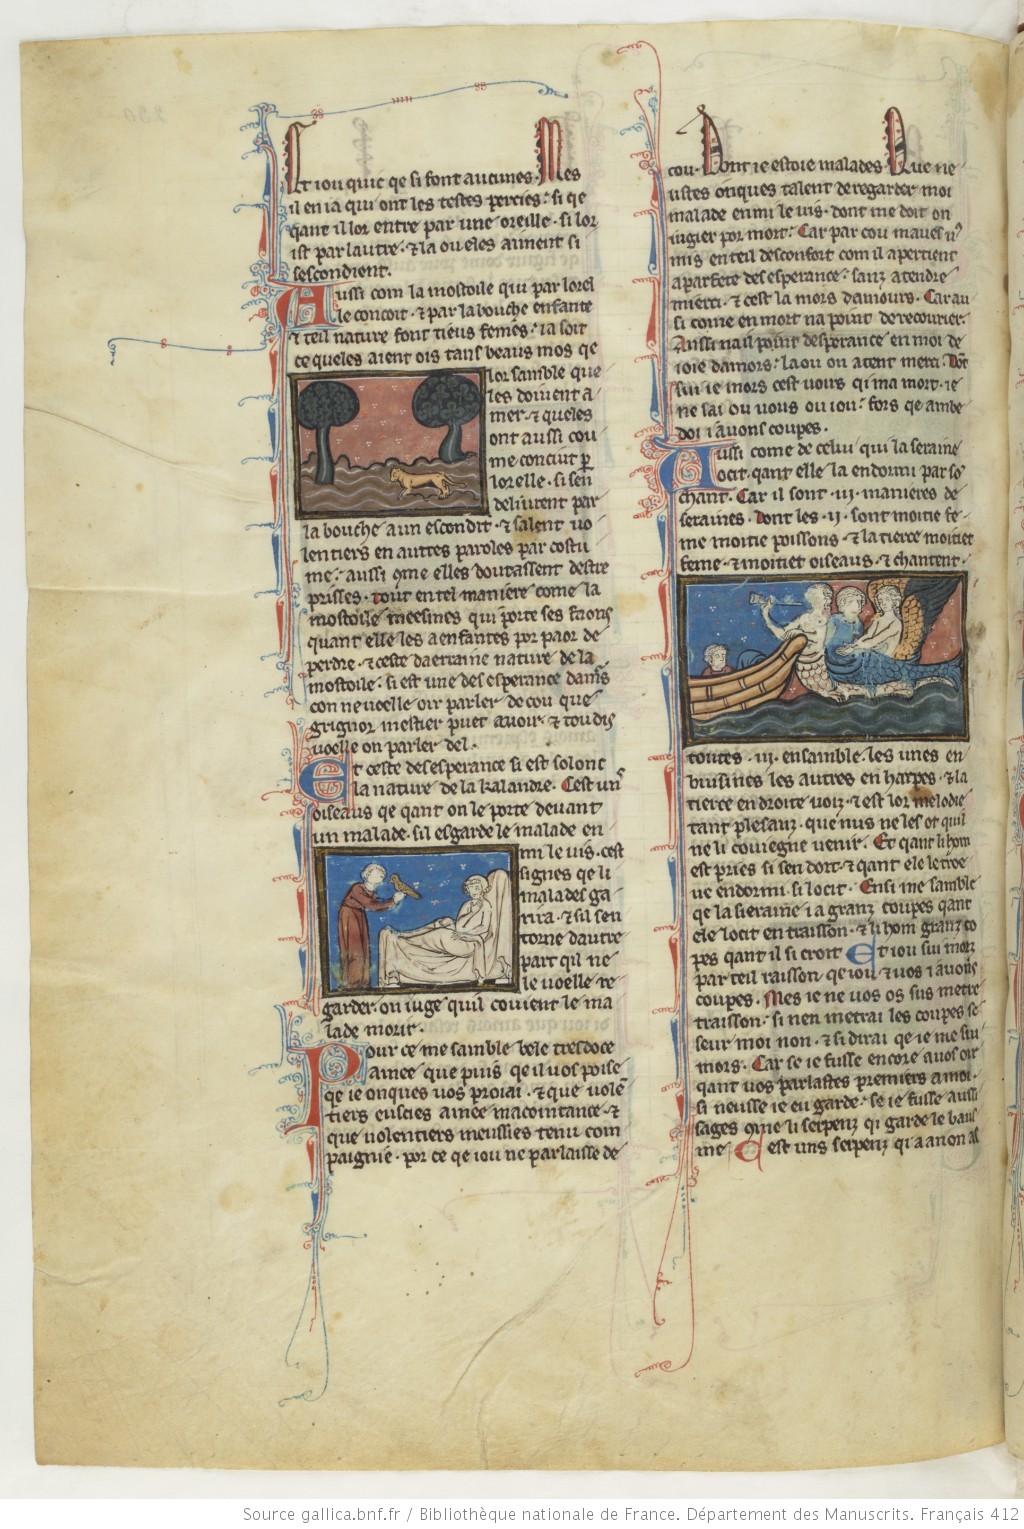 Et iou quic qe si font aucunes. Mes
il en ia qui ont les testes percies: si qe
qant il lor entre par une oreille. si lor
ist par lautre: & la ou eles aiment si
sescondient.
Aussi com la mostoile qui par lorel
le concoit. & par la bouche enfante
& teil nature font tieus femes: ia soit
ce queles aient ois tans beaus mos qe
lor samble que
les doivent a
mer. & queles
ont aussi cou
me conciut p
lorelle. si sen
delivrent par
la bouche a un escondit. & salent vo
lentiers en autres paroles par costu
me: aussi qme elles doutassent destre
prisses. tout en tel maniere come la
mostoile meesmes qui porte ses faons
quant elle les a enfantes por paor de
perdre. & ceste daerraine nature de la
mostoile: si est une desesperance damrs
con ne velle oir parler de cou que
grignor mestier puet avoir. & toudis
voelle on parler del.
Et ceste desesperance si est solonc
la nature de la kalandre. Cest un
oiseaus qe qant on le porte devant
un malade. sil esgarde le malade en
mi le vis. cest
signes qe li
malades ga
rira. & sil sen
torne dautre
part qil ne
le voelle re
garder. on iuge quil covient le ma
lade morir.
Pour ce me samble bele tresdoce
amee que puis qe il vos poise
qe ie onques vos proiai. & que volē
tiers eusies amee macointance. &
que volentiers meussies tenu com
paignie. por ce qe iou ne parlaisse de
cou. Dont ie estoie malades. Que ne
ustes onques talent de regarder moi
malade enmi le vis. dont me doit on
iugier por mort: Car par cou mavés vos
mis en teil desconfort com il apertient
a parfete desesperance: sanz atendre
merci. & cest la mors damours. Car au
si come en mort na point de recourier.
Aussi na il point desperance en moi de
ioie damors: la ou on atent merci. Dōt
sui ie mors cest vours qi ma mort. ie
ne sai ou vous ou iou: fors qe ambe
doi i avons coupes.
Aussi come de celui qui la seraine
ocit. qant elle la endormi par so
chant. Car il sont .iii. manieres de
seraines. dont les .ii. sont moitie fe
me moitie poissons. & la tierce moitiet
feme. & moitiet oiseaus. & chantent.
toutes .iii. ensamble. les unes en
buisines les autres en harpes. & la
tierce en droite voiz. & est lor melodie
tant plesanz. que nus ne les ot quil
ne li coviegne venir. Et qant li hom
est pries si sen dort. & qant ele le troe
ve endormi. si locit. Ensi me samble
qe la sieraine i a granz coupes qant
ele locit en traisson. & li hom granz co
pes qant il si croit Et iou sui morz
par teil raisson qe iou & vos i avons
coupes. Mes ie ne vos os sus metre
traisson: si nen metrai les coupes se
seur moi non. & si dirai qe ie me sui
mors. Car se ie fusse encore a vos oir
qant vos parlastes premiers a moi.
si neusse ie eu garde: se ie fusse aussi
sages qme li serpenz qi garde le baus
me Cest uns serpenz qi a a non as
Source gallica.bnf.fr / Bibliothèque nationale de France. Département des Manuscrits. Français 412